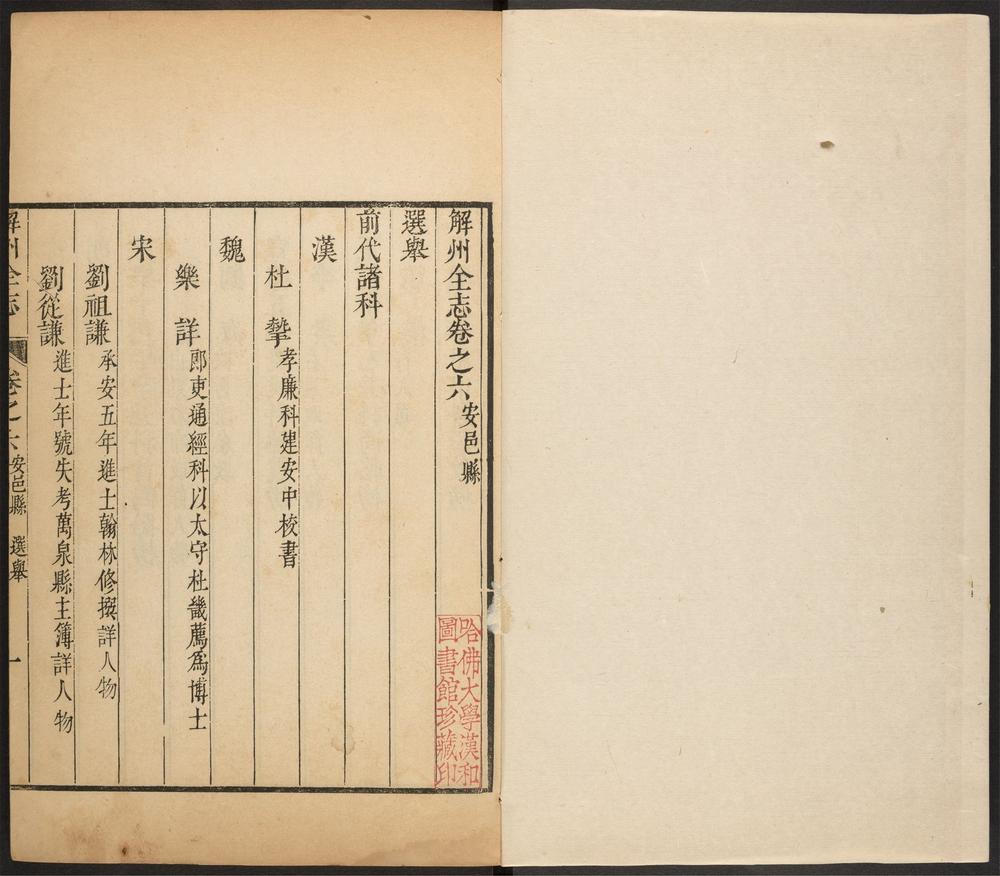 解州全志卷之六安邑縣
選舉
前代諸科
漢
杜摯孝廉科建安中校書
魏
樂詳郎吏通經科以太守杜畿薦爲博士
宋
劉祖謙承安五年進士翰林修撰詳人物
劉從謙進士年號失考萬泉縣主簿詳人物
解州全志 卷之六安邑縣 選舉 一
哈佛大學漢和
圖書館珍藏印